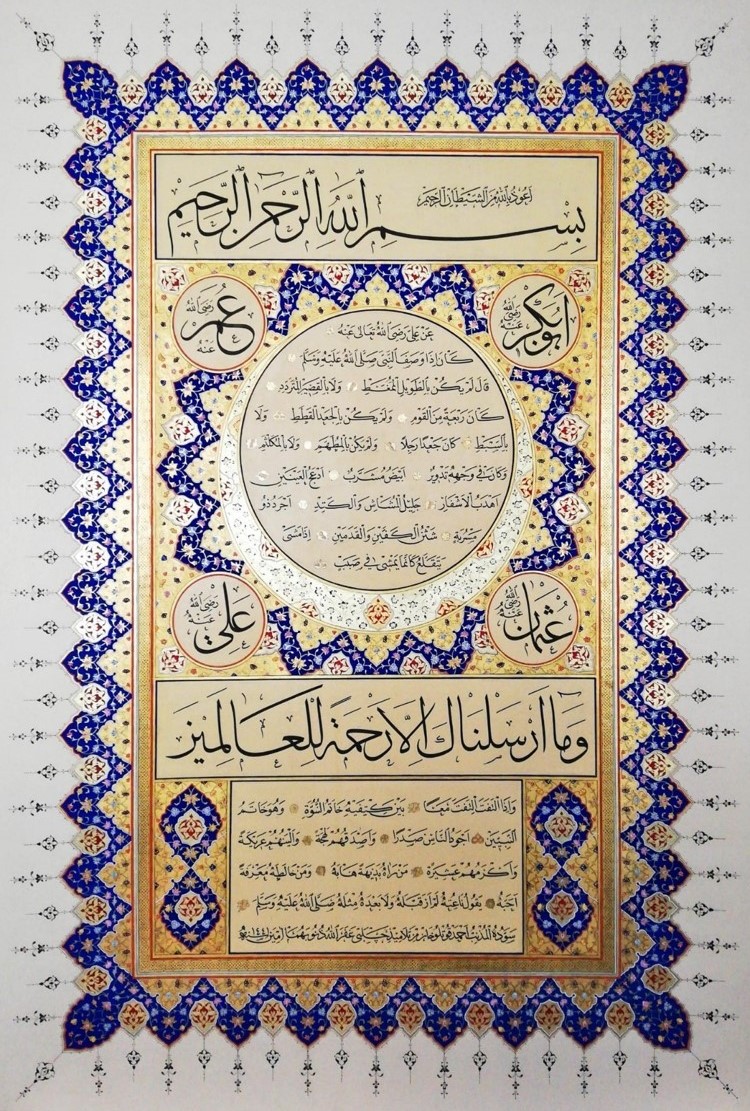 اعوذ بالله من الشيطان الرجيم
بسم الله الرحمن الرحيم
ابوبكر رضى الله عنه
عمر رضى الله عنه
عن على رضى الله تعالى عنه
كان اذا وصف النبى صلى الله عليه وسلم
قال لم يكن بالطويل الممغط ولا بالقصير المتردد
كان ربعة من القوم ولم يكن بالجعد القطط ولا
بالسبط كان جعدا رجلا ولم يكن بالمطهم ولا بالمكلثم
وكان فى وجهه تدوير ابيض مشرب ادعج العينين
اهدب الاشفار جليل المشاش والكتد اجرد ذو
مسربة شثن الكفين والقدمين اذا مشى
يتقلع كانما يمشى فى صبب
عثمان رضى الله عنه
على رضى الله عنه
وما ارسلناك الا رحمة للعالمين
واذا التفت التفت معا بين كتفيه خاتم النبوة وهو خاتم
النبيين اجود الناس صدرا واصدقهم لهجة والينهم عريكة
واكرمهم عشيرة من راه بديهة هابه ومن خالطه معرفة
احبه يقول ناعته لم ار قبله ولا بعده مثله صلى الله عليه وسلم
سوده المذنب احمد غفر الله ذنوبهما امين